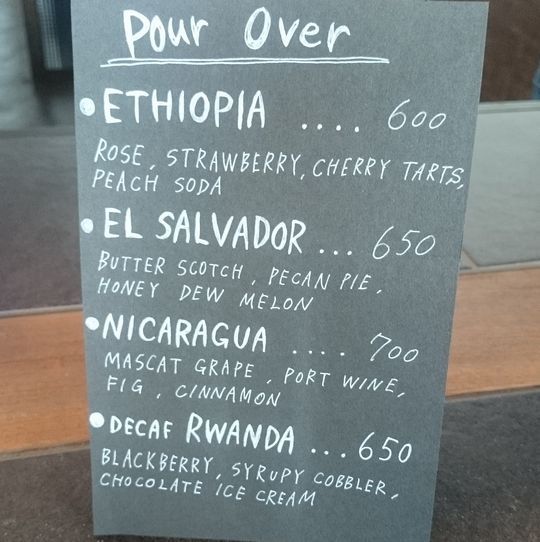 Pour Over
• ETHIOPIA .... 600
ROSE, STRAWBERRY, CHERRY TARTS,
PEACH SODA
• EL SALVADOR ... 650
BUTTER SCOTCH, PECAN PIE,
HONEY DEW MELON
• NICARAGUA .... 700
MASCAT GRAPE, PORT WINE,
FIG, CINNAMON
• DECAF RWANDA ... 650
BLACKBERRY, SYRUPY COBBLER,
CHOCOLATE ICE CREAM